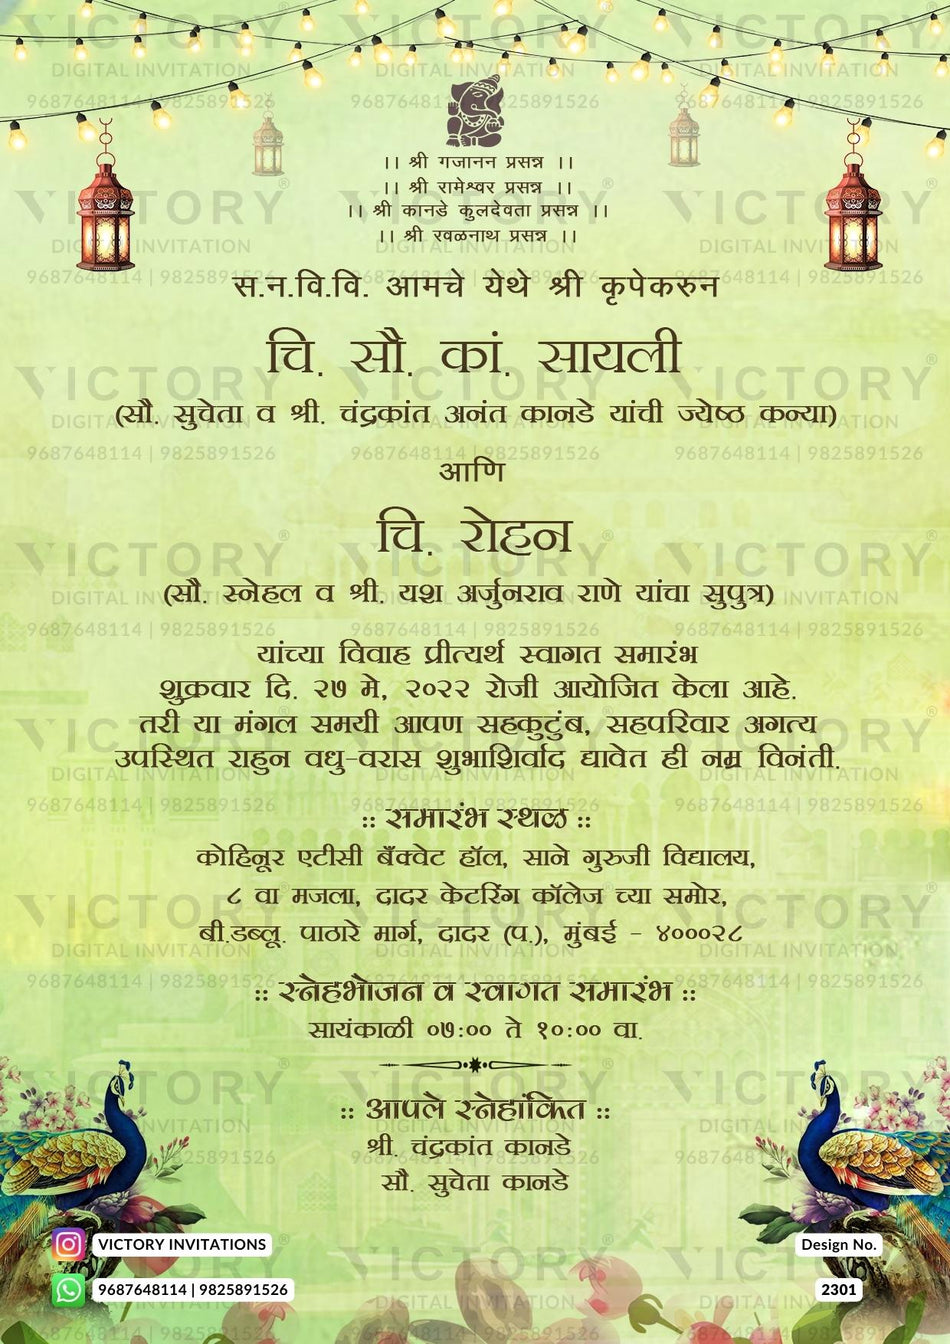 ।। श्री गजानन प्रसन्न ।।
।। श्री रामेश्वर प्रसन्न ।।
।। श्री कानडे कुलदेवता प्रसन्न ।।
।। श्री रवळनाथ प्रसन्न ।।
स.न.वि.वि. आमचे येथे श्री कृपेकरुन
चि. सौ. कां. सायली
(सौ. सुचेता व श्री. चंद्रकांत अनंत कानडे यांची ज्येष्ठ कन्या)
आणि
चि. रोहन
(सौ. स्नेहल व श्री. यश अर्जुनराव राणे यांचा सुपुत्र)
यांच्या विवाह प्रीत्यर्थ स्वागत समारंभ
शुक्रवार दि. २७ मे, २०२२ रोजी आयोजित केला आहे.
तरी या मंगल समयी आपण सहकुटुंब, सहपरिवार अगत्य
उपस्थित राहुन वधु-वरास शुभाशिर्वाद द्यावेत ही नम्र विनंती.
:: समारंभ स्थळ ::
कोहिनूर एटीसी बँक्वेट हॉल, साने गुरुजी विद्यालय,
८ वा मजला, दादर केटरिंग कॉलेज च्या समोर,
बी.डब्लू. पाठारे मार्ग, दादर (प.), मुंबई - ४०००२८
:: स्नेहभोजन व स्वागत समारंभ ::
सायंकाळी ०७:०० ते १०:०० वा.
:: आपले स्नेहांकित ::
श्री. चंद्रकांत कानडे
सौ. सुचेता कानडे
VICTORY INVITATIONS
9687648114 | 9825891526
Design No.
2301
VICTORY®
DIGITAL INVITATION
9687648114 | 9825891526